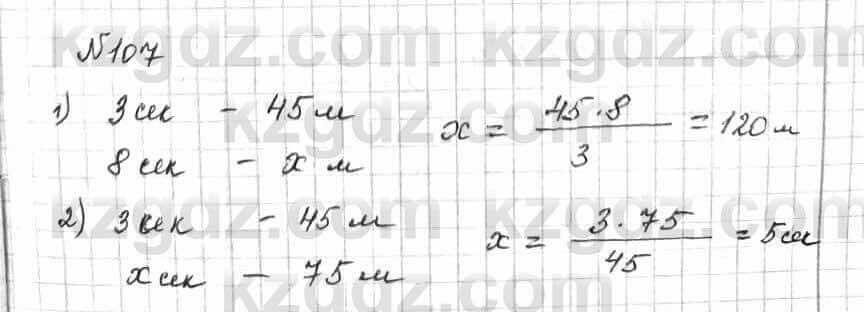 №107
1) 3 сек - 45 м x = 45·8 / 3 = 120 м
8 сек - x м
2) 3 сек - 45 м x = 3·75 / 45 = 5 сек
x сек - 75 м
kzgdz.com kzgdz.com
kzgdz.com kzgdz.com
kzgdz.com kzgdz.com